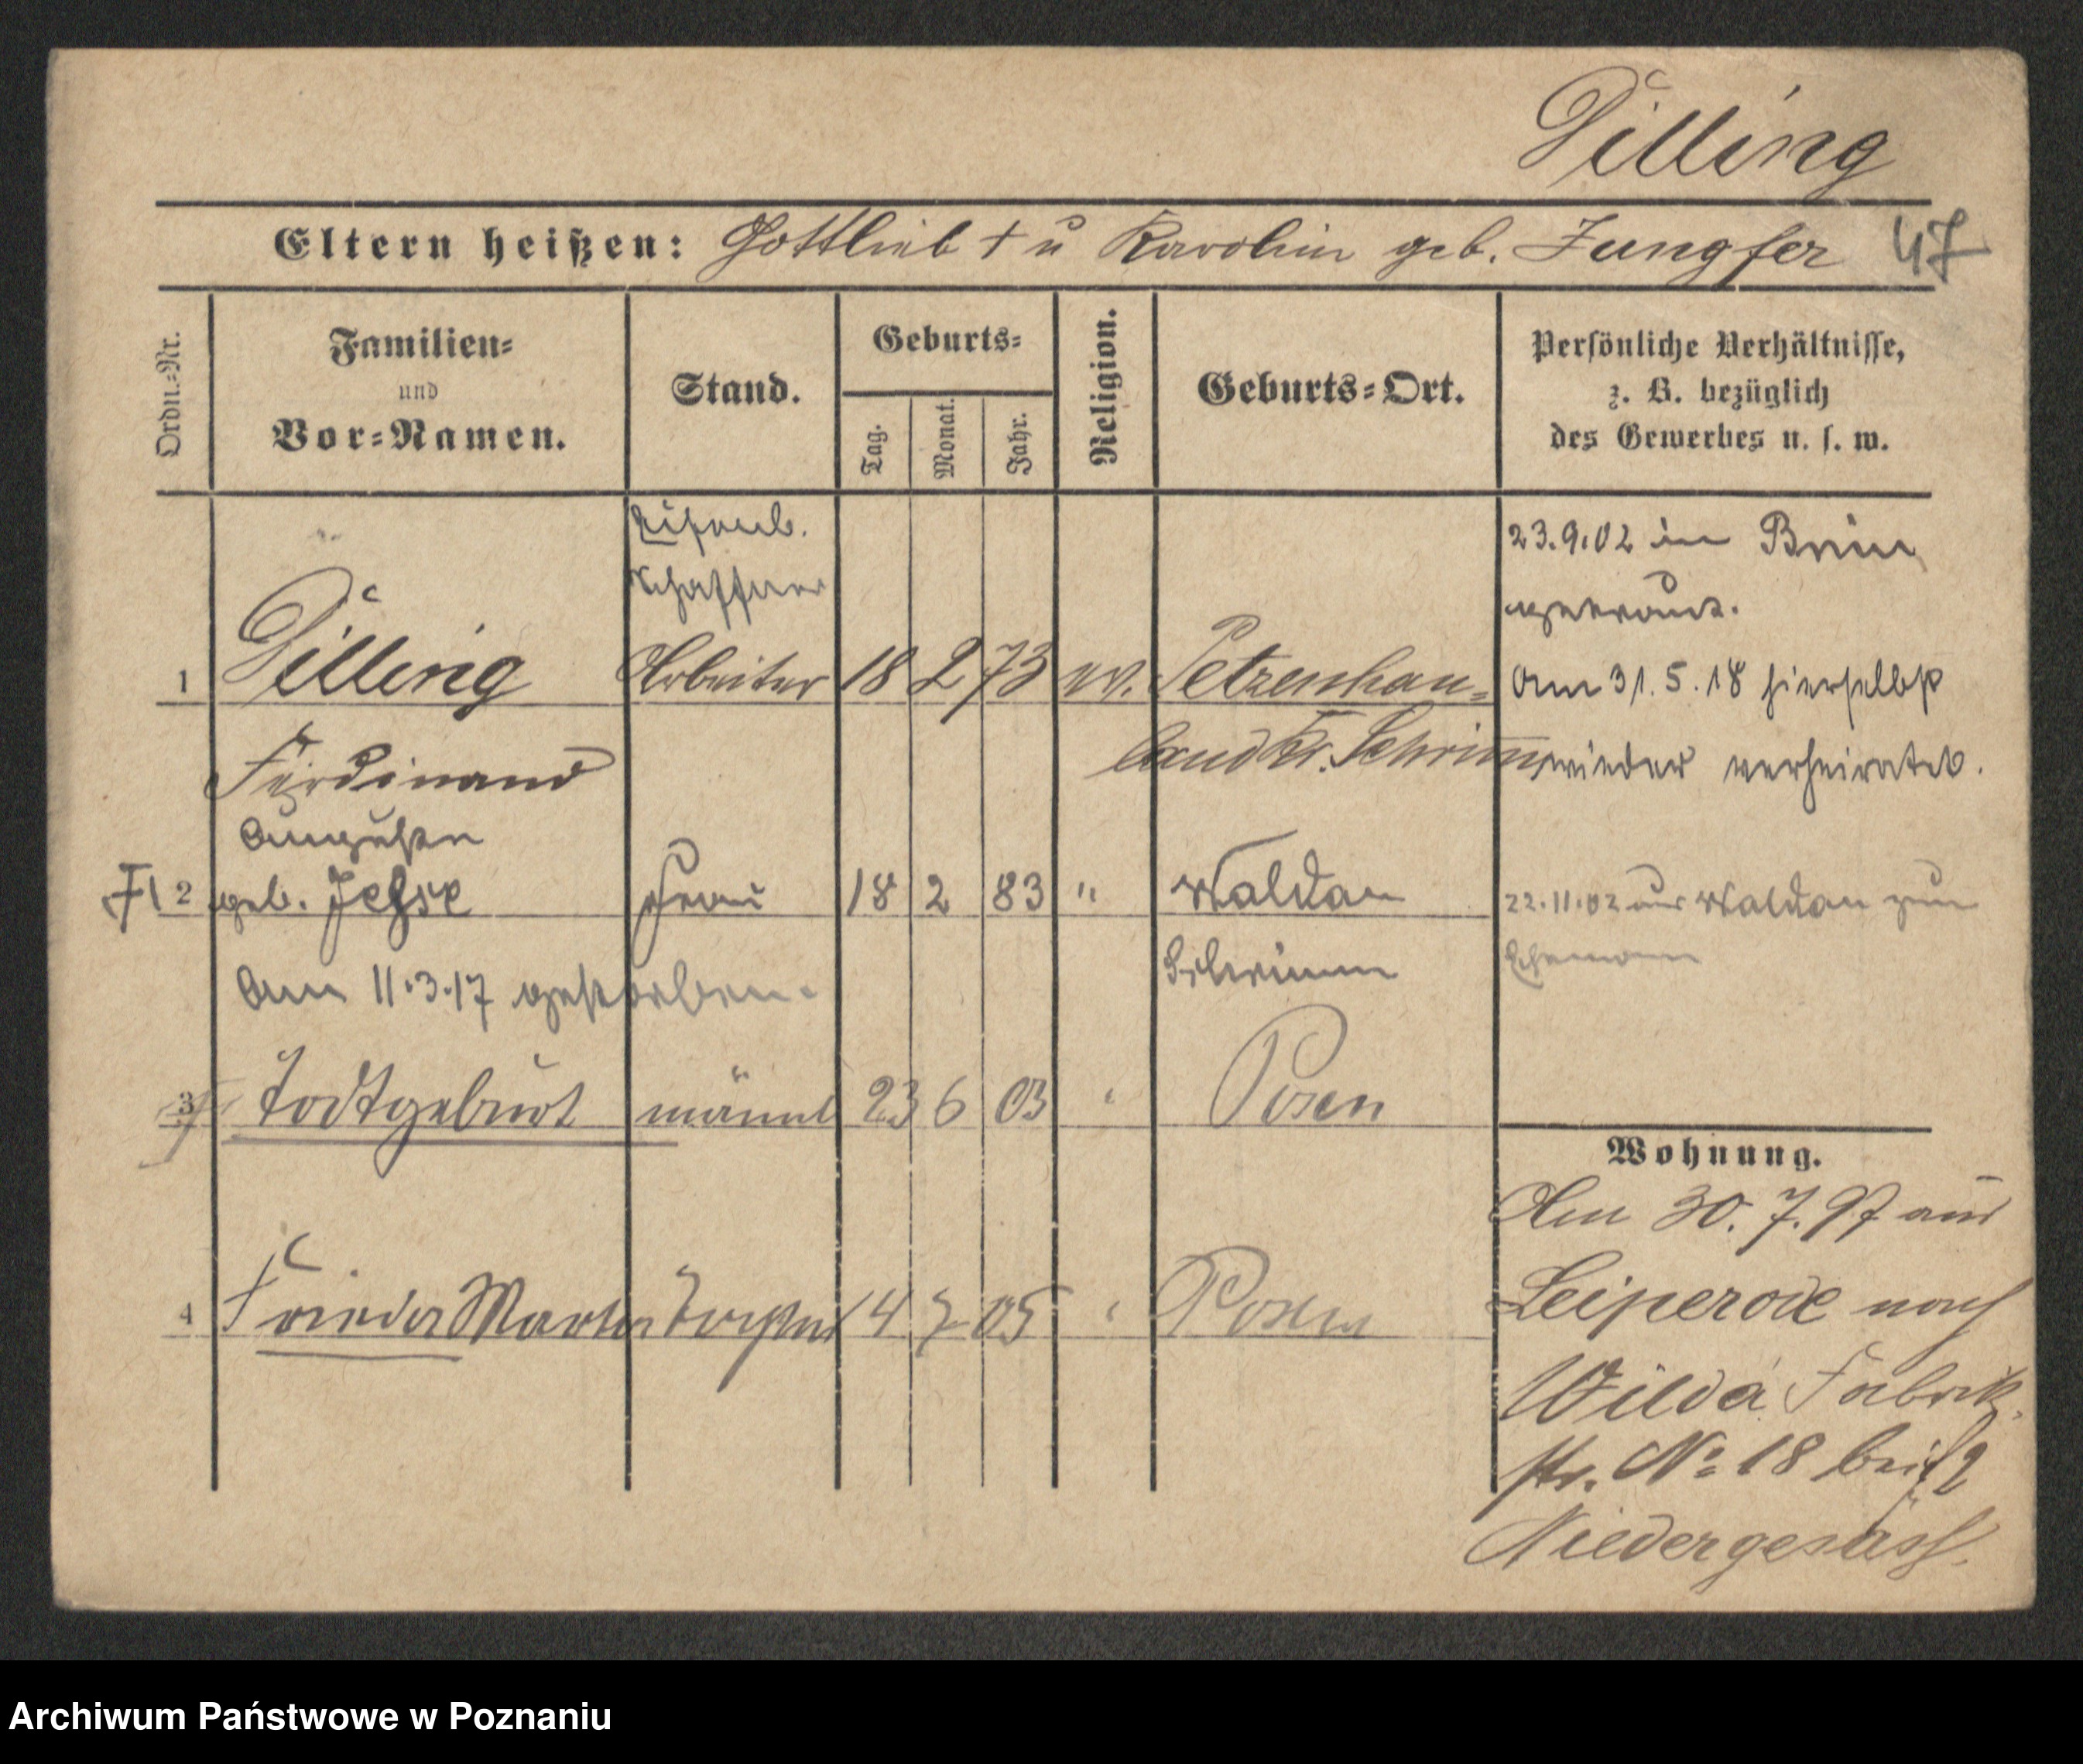 Pilling
Eltern heißen: Gottlieb † u Karolin geb. Jungfer 47
Ordn.=Nr.
Familien=
und
Vor=Namen.
Stand.
Geburts=
Tag.
Monat.
Jahr.
Religion.
Geburts=Ort.
Persönliche Verhältnisse,
z. B. bezüglich
des Gewerbes u. s. w.
Eisenb.
Schaffner
1 Pilling Arbeiter 18 2 73 ev. Petzenhau=
land Kr. Schrimm
Ferdinand
23.9.02 in
getraut.
Am 31.5.18 hierselbst
wieder verheiratet.
Auguste
2 geb. Jeßke Frau 18 2 83 " Waldau
Schrimm
22.11.02 aus Waldau zum
Ehemann
Am 11.3.17 gestorben.
3 Todtgeburt männl 23 6 03 " Posen
4 Martha Tochter 14 7 05 " Posen
Wohnung.
Am 30.7.97 aus
Leiperode nach
Wilda Fabrik
str. № 18 bei
Niedergesäss.
Archiwum Państwowe w Poznaniu